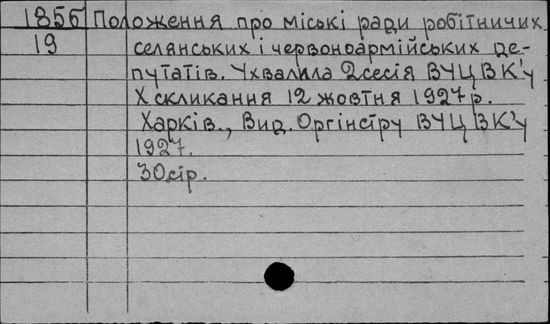 1856 Положення про міські ради робітничих
19 селянських і червоноармійських де-
путатів. Ухвалила 2 сесія ВУЦВК'у
X скликання 12 жовтня 1927 р.
Харків., Вид. Оргінстру ВУЦВК'у
1927.
30 стр.